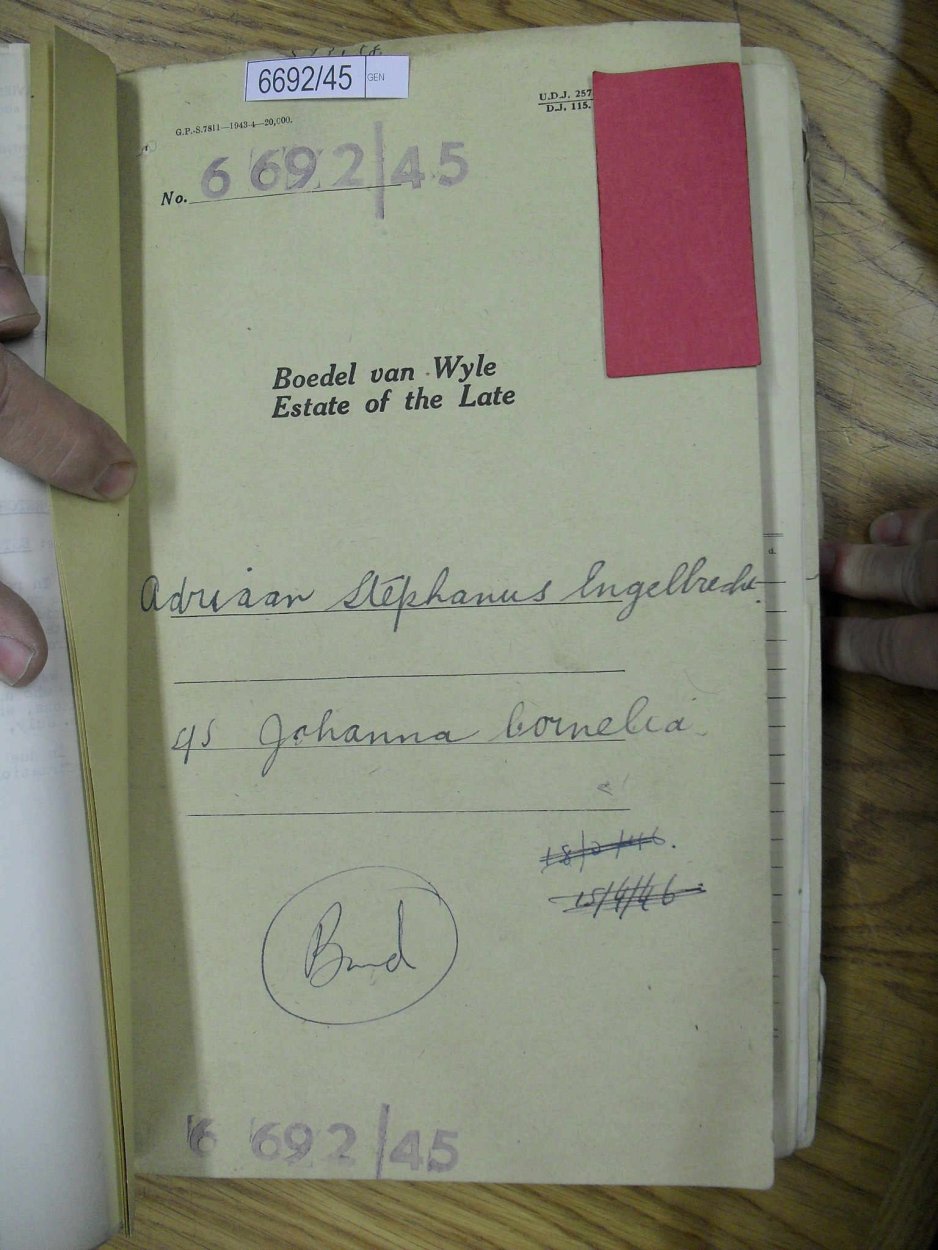 6692/45 GEN
U.D.J. 257
D.J. 115.
G.P.-S.7811—1943-4—20,000.
No. 6692/45
Boedel van Wyle
Estate of the Late
Adriaan Stephanus Engelbrecht.
q/s Johanna Cornelia
15/4/46
Bond
6692/45